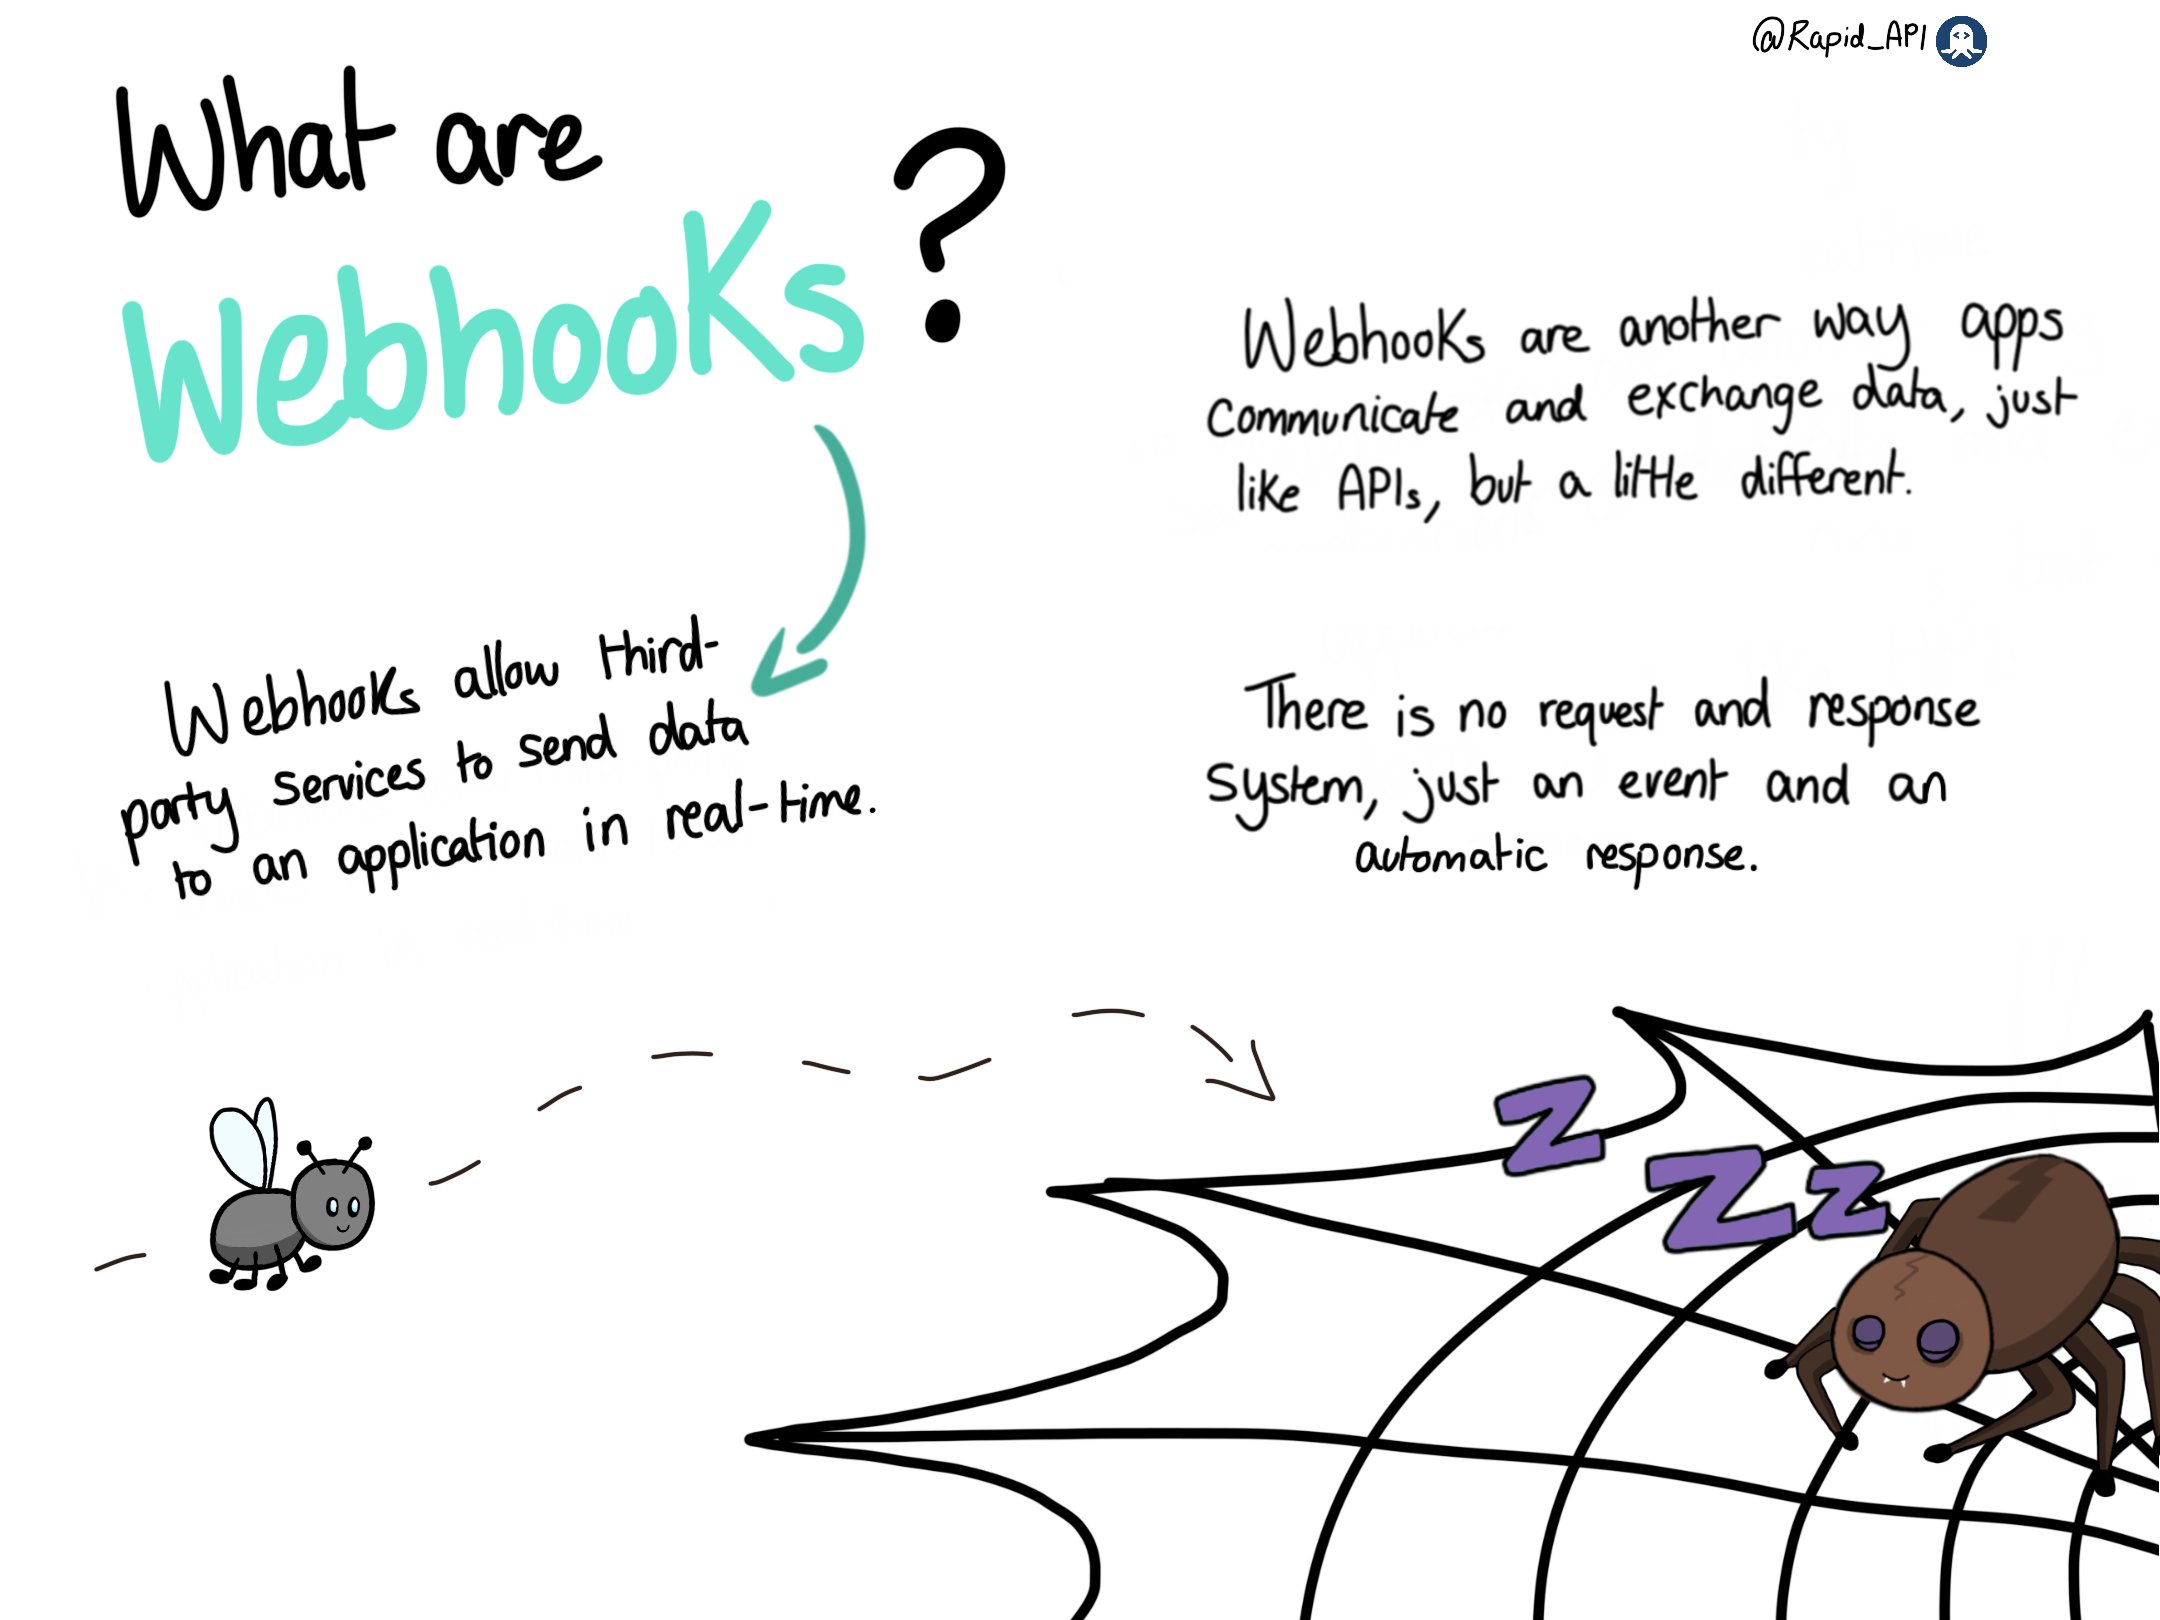 @Rapid_API
What are
Webhooks?
Webhooks allow third-
party services to send data
to an application in real-time.
Webhooks are another way apps
communicate and exchange data, just
like APIs, but a little different.
There is no request and response
system, just an event and an
automatic response.
Z
Z
Z